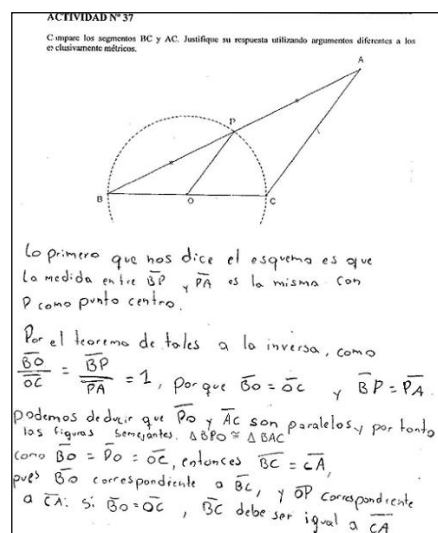 ACTIVIDAD Nº 37
Compare los segmentos BC y AC. Justifique su respuesta utilizando argumentos diferentes a los
exclusivamente métricos.
A
P
B
O
C
Lo primero que nos dice el esquema es que
la medida entre BP y PA es la misma con
P como punto centro.
Por el teorema de tales a la inversa, como
BO/OC = BP/PA = 1, porque BO = OC y BP = PA.
podemos deducir que PO y AC son paralelos, y por tanto
las figuras semejantes. △BPO ≅ △BAC
como BO = PO = OC, entonces BC = CA,
pues BO correspondiente a BC, y OP correspondiente
a CA: Si BO = OC, BC debe ser igual a CA